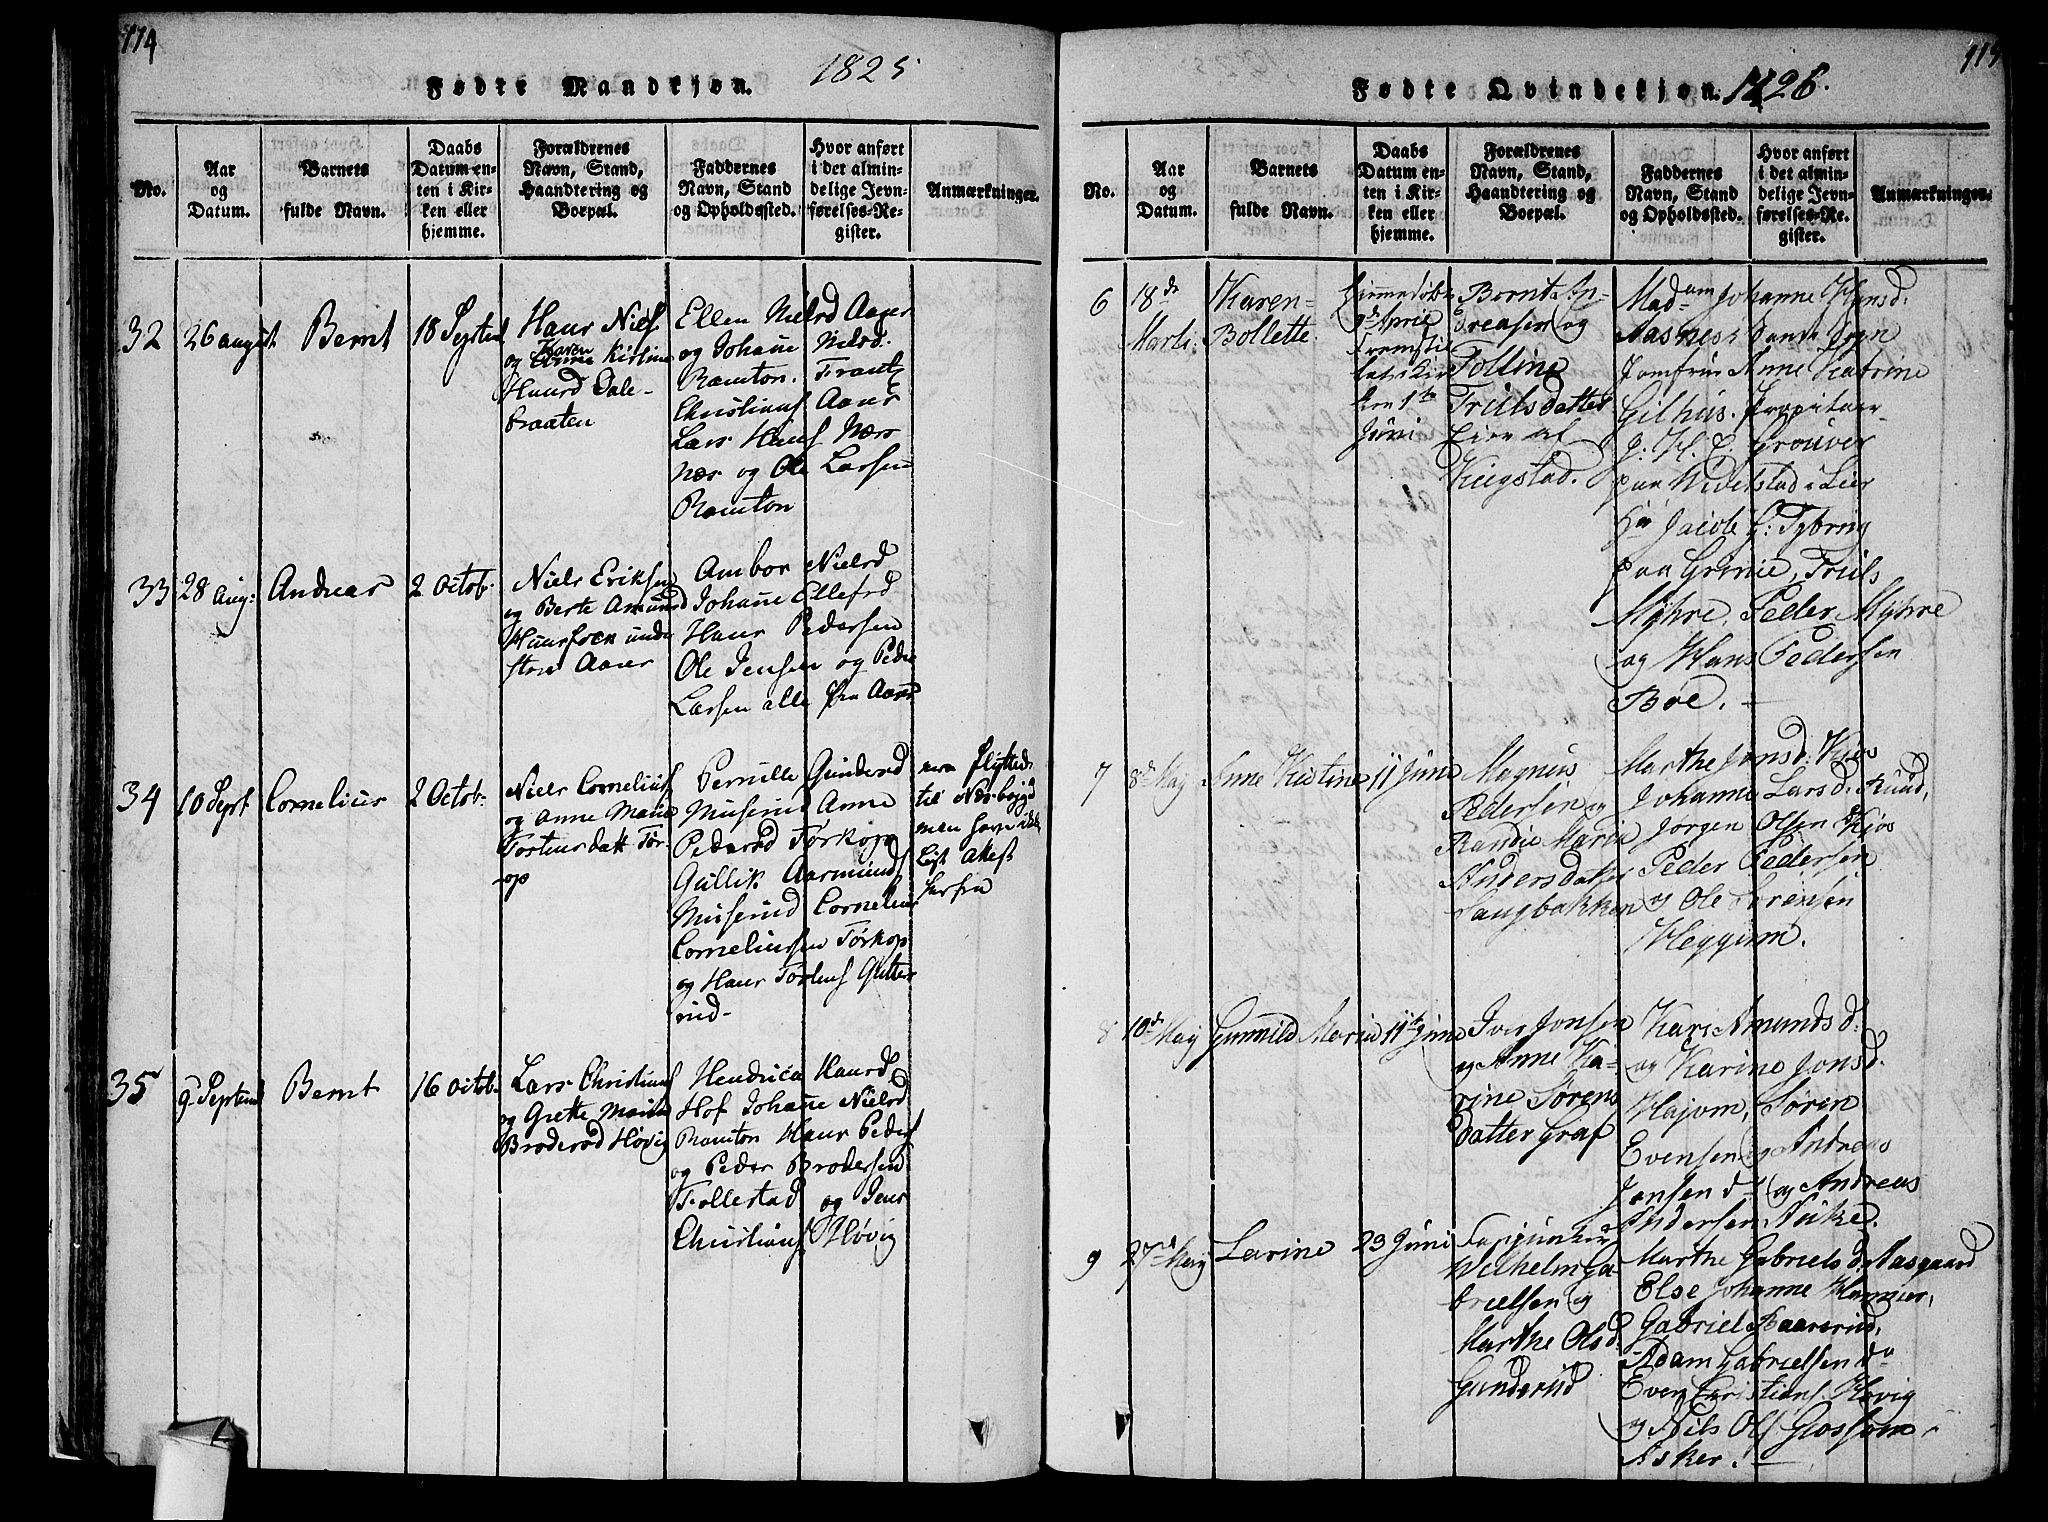 114
Fødte Mandkjøn. 1825
No.
Aar
og
Datum.
Barnets
fulde Navn.
Daabs
Datum en-
ten i Kir-
ken eller
hjemme.
Forældrenes
Navn, Stand,
Haandtering og
Boepæl.
Faddernes
Navn, Stand
og Opholdssted.
Hvor anført
i det almin-
delige Jevn-
førelses-Re-
gister.
Anmærkninger.
32
26 august
Bernt
18 Septem
Hans Niels
og Karen Kirstine
Hansd Dale-
braaten
Ellen Nielsd Aaser
og Johane Nielsd.
Ramton. Frantz
Christians Aaser
Lars Hans Næs
næs og Ole Larsen
Ramton
33
28 Aug:
Andreas
2 Octob.
Niels Eriksen
og Berte Amunds
Huusfolk under
store Aaser
Ambor Nielsd
Johane Ellefsd
Hans Pedersen
Ole Jensen og Peder
Larsen alle fra Aaser
34
10 Sept
Cornelius
2 Octob.
Niels Cornelius
og Anne Marie
Tostensdatt Tør-
kop
Pernille Gundersd
Muserud Anne
Pedersd Tørkop
Gullik Aasmunds
Muserud Cornelius
Corneliussen Tørkop
og Hans Tostens Gutte-
rud-
ere flyttede
til Næs bøygd
men havn ikke
Løst Attest
herfra
35
9 Septemb
Bernt
16 Octob.
Lars Christians
og Grethe Marie
Brodersd Høvig
Hendrica Hansd
Hof Johane Nielsd
Ramton Hans Peders
og Peder Brodersen
Follestad og Jens
Christians Høvig
Fødte Qvindekjøn. 1826.
No.
Aar
og
Datum.
Barnets
fulde Navn.
Daabs
Datum en-
ten i Kir-
ken eller
hjemme.
Forældrenes
Navn, Stand,
Haandtering og
Boepæl.
Faddernes
Navn, Stand
og Opholdssted.
Hvor anført
i det almin-
delige Jevn-
førelses-Re-
gister.
Anmærkninger.
6
18de
Marti:
Karen-
Bollette.
Hiemmedøbt
9de April
Fremstil
let i Kir
ken 1te
Juni
Bernt An-
dreasen og
Tolline
Trulsdatter
Eier af
Kiigstad.
Madam Johanne Jensd.
Jomfrue Anne Katrine
Gilhus. Proprietær
J: H. C. Grouver
paa Hvidtstad i Lier
Hr Jacob L: Tybring
paa Grinie, Truls
Myhre, Peder Myhre
og Hans Pedersen
Boe. -
7
8de May
Anne Kirstine
11 June
Magnus
Pedersen og
Randie Marie
Andersdatter
Haugbakken
Marthe Jonsd: Kjos
Johanne Larsd. Ruud,
Jørgen Olsen Kjos
Peder Pedersen
og Ole Sørensen
Heggum.
8
10de May
Gunnild Marie
11te June
Iver Jonsen
og Anne Ka-
rine Sørens
datter Graf
Kari Amunds d:
og Karine Jonsd.
Hajom, Søren
Evensen og Andreas
Jonsen do og Andreas
Andersen Nike.
9
27de May
Lavine
29 Juni
Wilhelm Ga-
brielsen og
Marthe Olsd.
Gunderud
Marthe Gabrielsd: Aasgaard
Else Johanne Hammer,
Gabriel Baarsrud,
Adam Gabrielsen do
Even Christians. Høvig
og Nils Ols Glossom
Asker. -